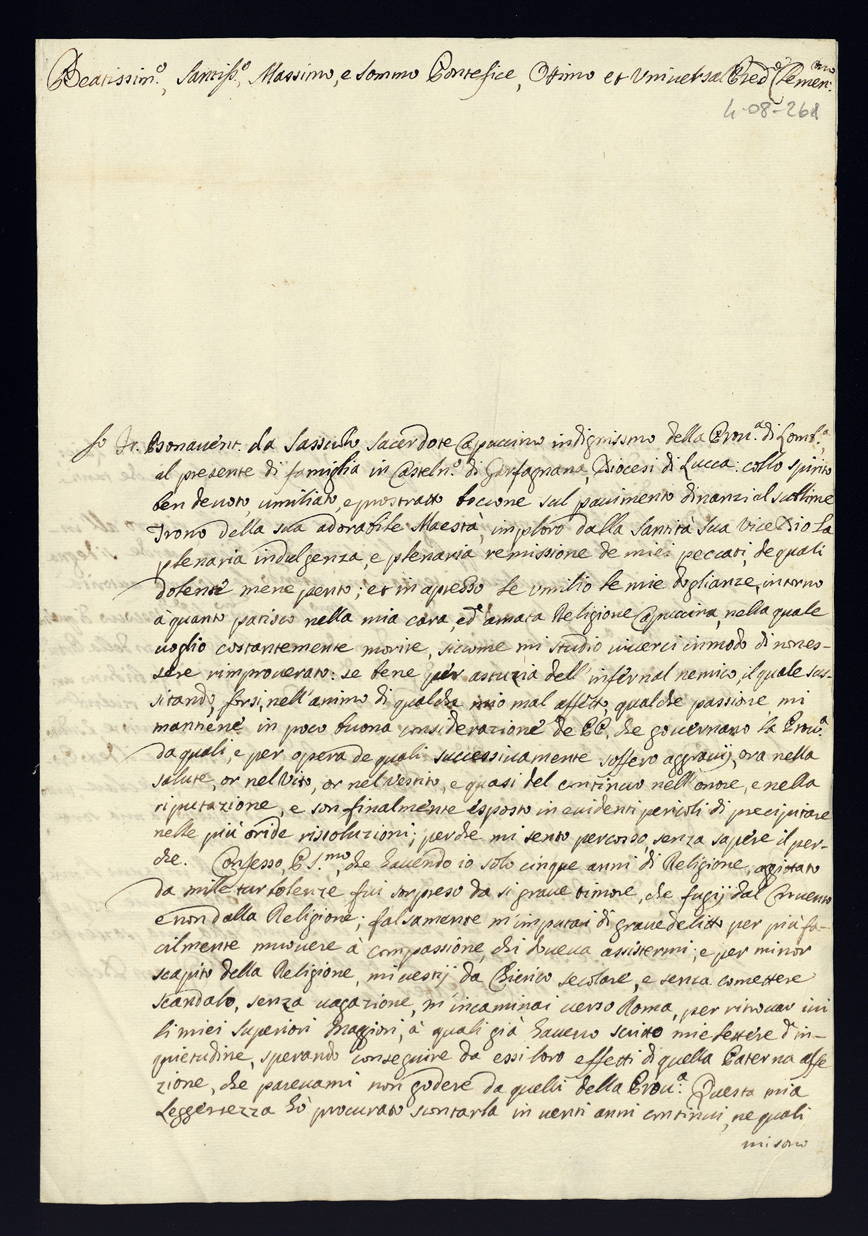 Beatissim.º, Santiss.º, Massimo, e Sommo Pontefice, Ottimo et Universal Pred.e Clemen.mo
4-08-261
Io Fr. Bonavent. da Sassuolo Sacerdote Capuccino indignissimo della Prov.a di Lomb.a
al presente di famiglia in Casteln.º di Garfagnana, Diocesi di Lucca: collo spirito
ben devoto, umiliato, e prostrato boccone sul pavimento dinanzi il sublime
Trono della sua adorabile Maestà, imploro dalla Santità Sua Vice Dio la
plenaria indulgenza, e plenaria remissione de miei peccati, de quali
dolente mene pento; et in apresso le umilio le mie doglianze, intorno
à quanto patisco nella mia cara, ed amata Religione Capuccina, nella quale
voglio costantemente morire, siccome mi studio viverci in modo di non es-
sere rimproverato: se bene per astuzia dell'infernal nemico, il quale sus-
sitando, forsi, nell'animo di qualche mio mal affetto, qualche passione mi
mantiene in poco buona considerazione de PP. che governano la Prov.a
da quali, e per opera de quali successivamente soffero aggravij, ora nella
salute, or nel vito, or nel vestito, e quasi del continuo nell'onore, e nella
riputazione, e son finalmente esposto in evidenti pericoli di precipitare
nelle più oride rissoluzioni; perche mi sento percosso, senza sapere il per-
che. Confesso, P. S.mo, che havendo io solo cinque anni di Religione, agiotato
da mille turbolenze fui sorpreso da si grave timore, che fugij dal Convento
e non dalla Religione; falsamente m'imputai di grave delitto per più fa-
cilmente muovere à compassione, chi doveva assistermi; e per minor
scapito della Religione, mi vestij da Chierico secolare, e senza comettere
scandalo, senza vagazione, m'incaminai verso Roma, per ritrovar ivi
li miei Superiori Maggiori, à quali già havevo scritto mie lettere d'in-
quietudine, sperando conseguire da essi loro effetti di quella Paterna affe
zione, che parevami non godere da quelli della Prov.a: Questa mia
leggerezza hò procurato scontarla in venti anni continui, ne quali
mi sono